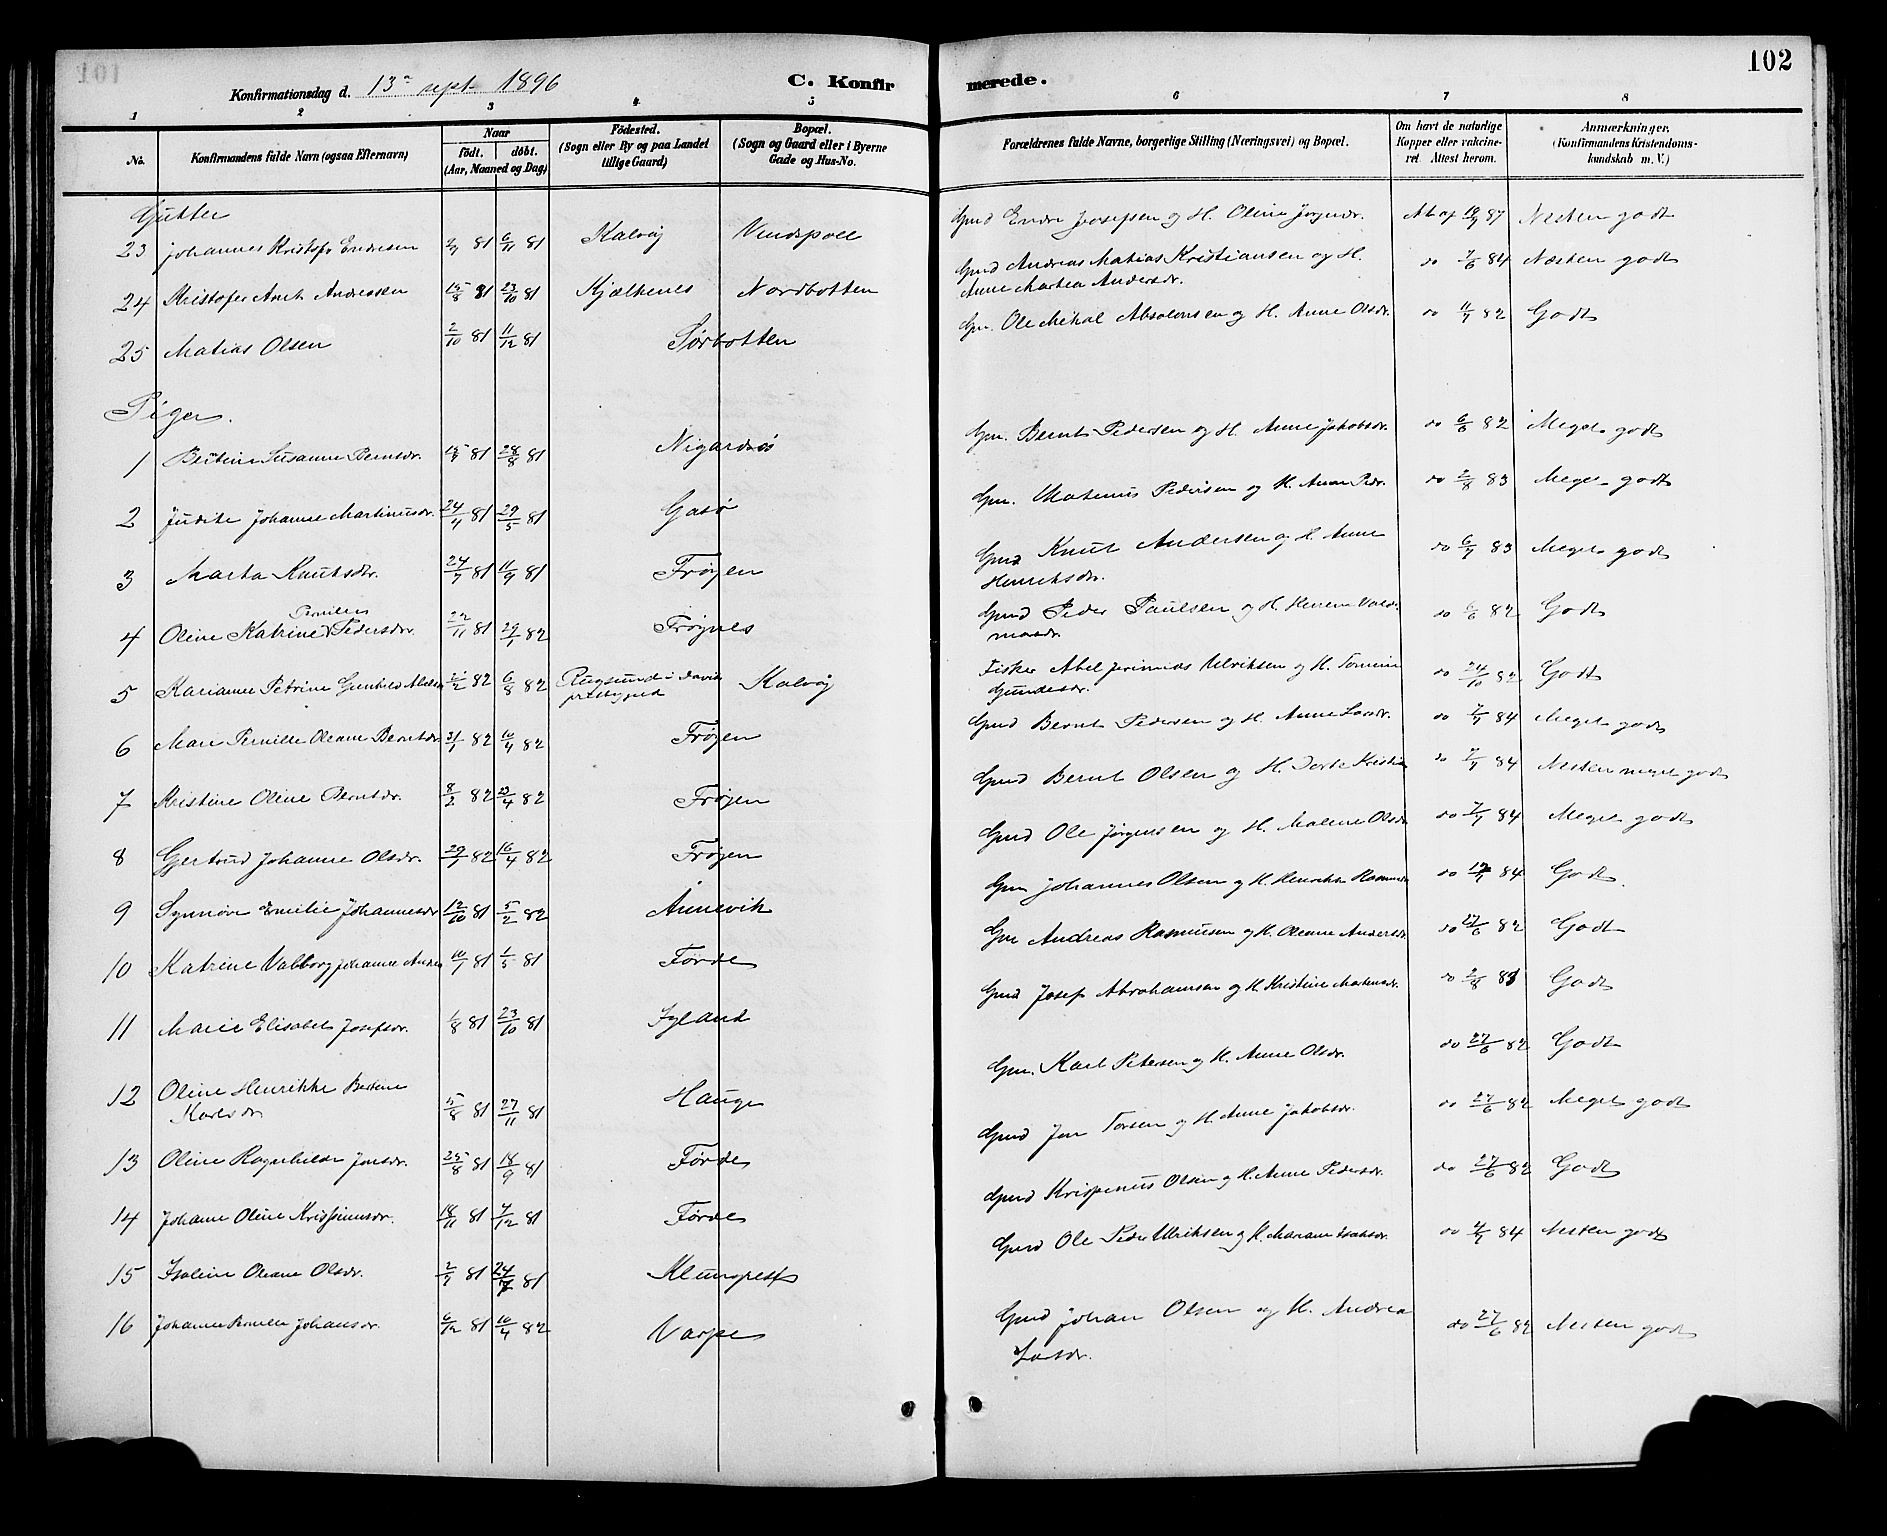 102
Konfirmationsdag d. 13de sept 1896
C. Konfir
merede.
1 2 3 4 5 6 7 8
No.
Konfirmandens fulde Navn (ogsaa Efternavn)
Naar
födt. döbt.
(Aar, Maaned og Dag)
Födested.
(Sogn eller By og paa Landet
tillige Gaard)
Bopæl.
(Sogn og Gaard eller i Byerne
Gade og Hus-No.
Forældrenes fulde Navne, borgerlige Stilling (Næringsvei) og Bopæl.
Om havt de naturlige
Kopper eller vakcine-
ret. Attest herom.
Anmærkninger.
(Konfirmandens Kristendoms-
kundskab m. V.)
Gutter
23 Johannes Kristofr Endresen 81 6/11 81 Kalvøg Gmd Endre Josefsen og H. Oline Jørgendr. At af 87 Nesten godt
24 Kristofer Andreassen 15/8 81 23/10 81 Kjælkenes Nordbotten Gmd Andreas Matias Kristiansen og H.
Anne Martea Andersdr. do 84 Næsten godt
25 Matias Olsen 2/10 81 11/12 81 Sørbotten Gm. Ole Mikal Absalonsen og H. Anne Olsdr. do 82 Godt
Piger.
1 Bertine Susanne Berntsdr. 81 28/8 81 Nigardsøs Gm. Bernt Pedersen og H. Anne Jakobsdr. do 6/6 82 Meget godt
2 Judite Johanne Martinusdr. 24/4 81 29/5 81 Gasø Gm. Pedersen og H. Anne Pedr. do 2/8 83 Meget godt
3 Marta Knutsdr. 24/7 81 11/9 81 Frøyen Gmd Knut Andersen og H. Anne
Henriksdr. do 83 Meget godt
Pernille
4 Oline Katrine Pedersdr. 22/11 81 29/1 82 Frøynes Gmd Peder Paulsen og H. Valde
marsdr. do 6/6 82 Godt
5 Karianne Petrine 82 6/8 82 Rugsund i Davik
præstegjeld Kalvøg Fisker Abel Jerimias Ulriksen og H.
Gundesdr. do 24/10 82 Godt
6 Mari Pernille Oleane Berntsdr. 31/1 82 10/4 82 Frøyen Gmd Bernt Pedersen og H. Anne Larsdr. do 84 Meget godt
7 Kristine Oline Berntsdr. 8/2 82 82 Frøyen Gmd Bernt Olsen og H. Dorte Kristia do 84 Nesten meget godt
8 Gjertrud Johanne Olsdr. 29/1 82 16/4 82 Frøyen Gmd Ole Jørgensen og H. Malene Olsdr do 84 Meget godt
9 Synnøve Emilie Johannesdr 12/10 81 5/2 82 Ånnevik Gm Johannes Olsen og H. Henrikke Rasmusdr do 84 Godt.
10 Katrine Valborg Johanne Andrea 81 1/5 81 Førde Gm Andreas Rasmusen og H. Oleane Andersdr. do 27/6 82 Godt
11 Marie Elisabet Josefsdr. 1/8 81 23/10 81 Gmd Josef Abrahamsen og H. Kristine Martensdr. do 2/8 Godt
12 Oline Henrikke Bertine
Karlsdr 5/8 81 27/11 81 Hauge Gm. Karl Petersen og H. Anne Olsdr. do 27/6 82 Godt
13 Oline Ragnhilde Jonsdr. 25/8 81 18/9 81 Førde Gmd Jon Torsen og H. Anne Jakobsdr. do 27/6 82 Meget godt
14 Johanne Oline Krispinusdr. 18/11 81 81 Førde Gmd Krispinus Olsen og H. Anne Pedersdr. do 27/6 82 Godt
15 Oleane Olsdr. 81 81 Klungrest Gmd Ole Peder Ulriksen og H. Mariane do 84 Nesten godt
16 Johanne Pernille Johansdr 6/12 81 10/4 82 Varpe Gmd Johan Olsen og H. Andrea
Larsdr. do 27/6 82 Nesten godt